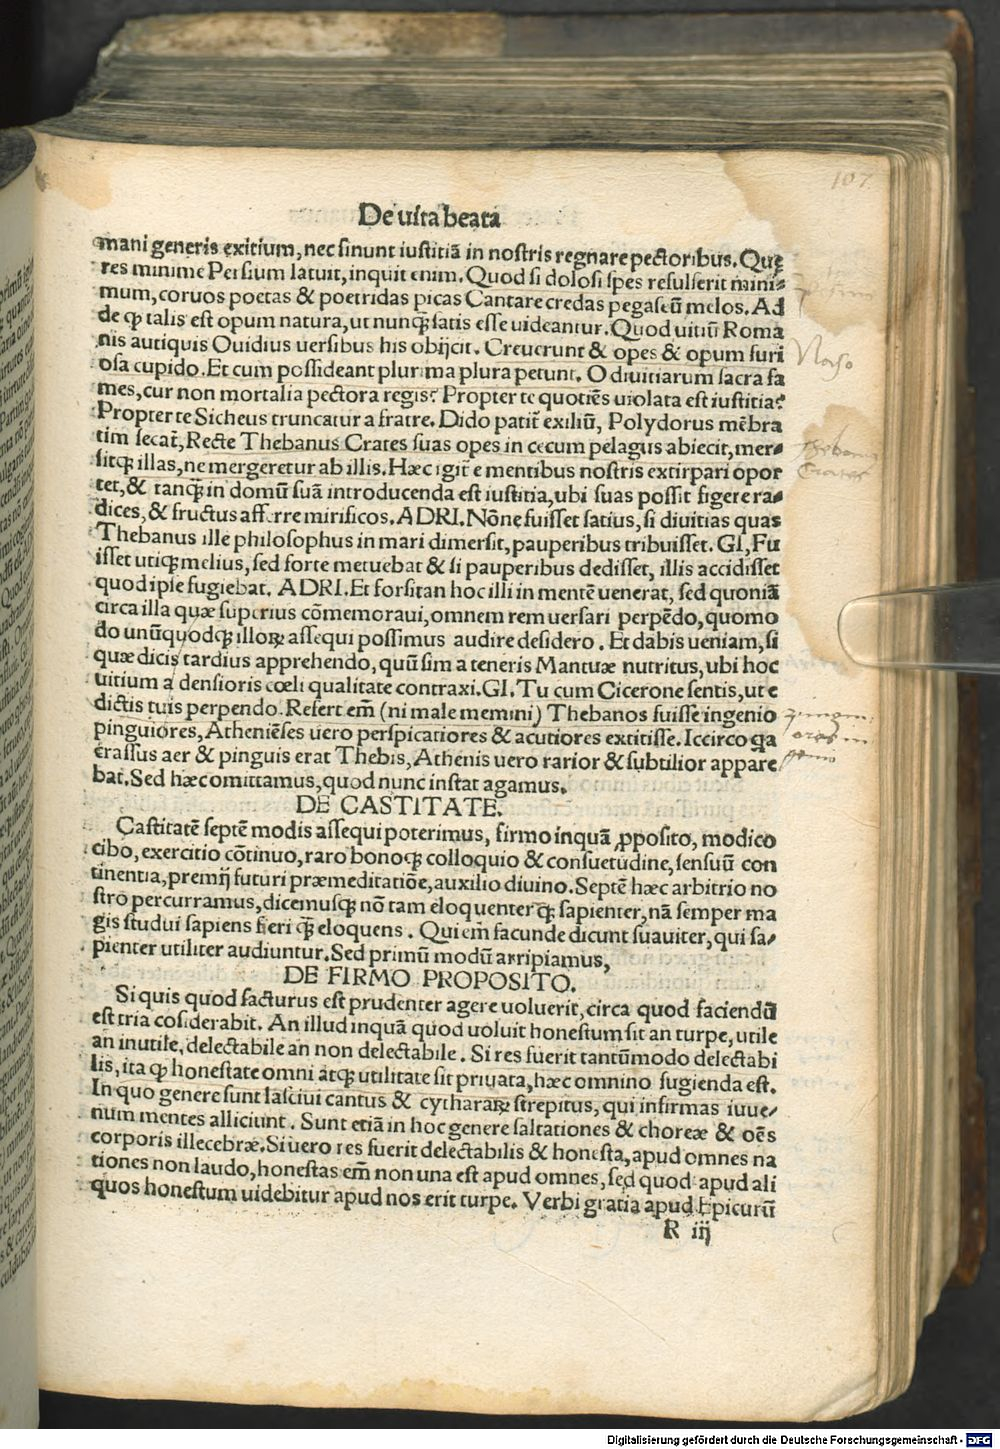 107
De uita beata
mani generis exitium, nec sinunt iustitiã in nostris regnare pectoribus. Quę
res minime Persium latuit, inquit enim. Quod si dolosi spes refulserit mini⸗
mum, coruos poetas & poetridas picas Cantare credas pegaseũ melos. Ad
de ꝙ talis est opum natura, ut nunq̃ satis esse uideantur. Quod uitiũ Roma
nis autiquis Ouidius uersibus his obijcit. Creuerunt & opes & opum furi
osa cupido. Et cum possideant plurima plura petunt. O diuitiarum sacra fa
mes, cur non mortalia pectora regis? Propter te quotiẽs uiolata est iustitia?
Propter te Sicheus truncatur a fratre. Dido patit̃ exiliũ, Polydorus mẽbra
tim secat̃, Recte Thebanus Crates suas opes in cecum pelagus abiecit, mer⸗
sitq; illas, ne mergeretur ab illis. Hæc igit̃ e mentibus nostris extirpari opor
tet, & tanq̃ in domũ suã introducenda est iustitia, ubi suas possit figere ra⸗
dices, & fructus afferre mirificos. ADRI. Nõne fuisset satius, si diuitias quas
Thebanus ille philosophus in mari dimersit, pauperibus tribuisset. GI, Fu
isset utiq; melius, sed forte metuebat & si pauperibus dedisset, illis accidisset
quod ipse fugiebat. ADRI. Et forsitan hoc illi in mentẽ uenerat, sed quoniã
circa illa quæ superius cõmemoraui, omnem rem uersari perpẽdo, quomo
do unũquodq; illoꝝ assequi possimus audire desidero. Et dabis ueniam, si
quæ dicis tardius apprehendo, quũ sim a teneris Mantuæ nutritus, ubi hoc
uitium a densioris cœli qualitate contraxi. GI. Tu cum Cicerone sentis, ut e
dictis tuis perpendo. Refert em̃ (ni male memini) Thebanos fuisse ingenio
pinguiores, Atheniẽses uero perspicatiores & acutiores extitisse. Iccirco qa
crassus aer & pinguis erat Thebis, Athenis uero rarior & subtilior appare
bat. Sed hæc omittamus, quod nunc instat agamus.
DE CASTITATE.
Castitatẽ septẽ modis assequi poterimus, firmo inquã ꝓposito, modico
cibo, exercitio cõtinuo, raro bonoq; colloquio & consuetudine, sensuũ con
tinentia, premij futuri præmeditatiõe, auxilio diuino. Septẽ hæc arbitrio no
stro percurramus, dicemusq; nõ tam eloquenter q̃ sapienter, nã semper ma
gis studui sapiens fieri q̃ eloquens. Qui em̃ facunde dicunt suauiter, qui sa⸗
pienter utiliter audiuntur. Sed primũ modũ arripiamus,
DE FIRMO PROPOSITO.
Si quis quod facturus est prudenter agere uoluerit, circa quod faciendũ
est tria cõsiderabit. An illud inquã quod uoluit honestum sit an turpe, utile
an inutile, delectabile an non delectabile. Si res fuerit tantũmodo delectabi
lis, ita ꝙ honestate omni atq; utilitate sit priuata, hæc omnino fugienda est.
In quo genere sunt lasciui cantus & cythararꝝ strepitus, qui infirmas iuue⸗
num mentes alliciunt. Sunt etiã in hoc genere saltationes & choreæ & oẽs
corporis illecebræ. Si uero res fuerit delectabilis & honesta, apud omnes na
tiones non laudo, honestas em̃ non una est apud omnes, sed quod apud ali
quos honestum uidebitur apud nos erit turpe. Verbi gratia apud Epicurũ
R iij
Naso
Crates
Digitalisierung gefördert durch die Deutsche Forschungsgemeinschaft - DFG